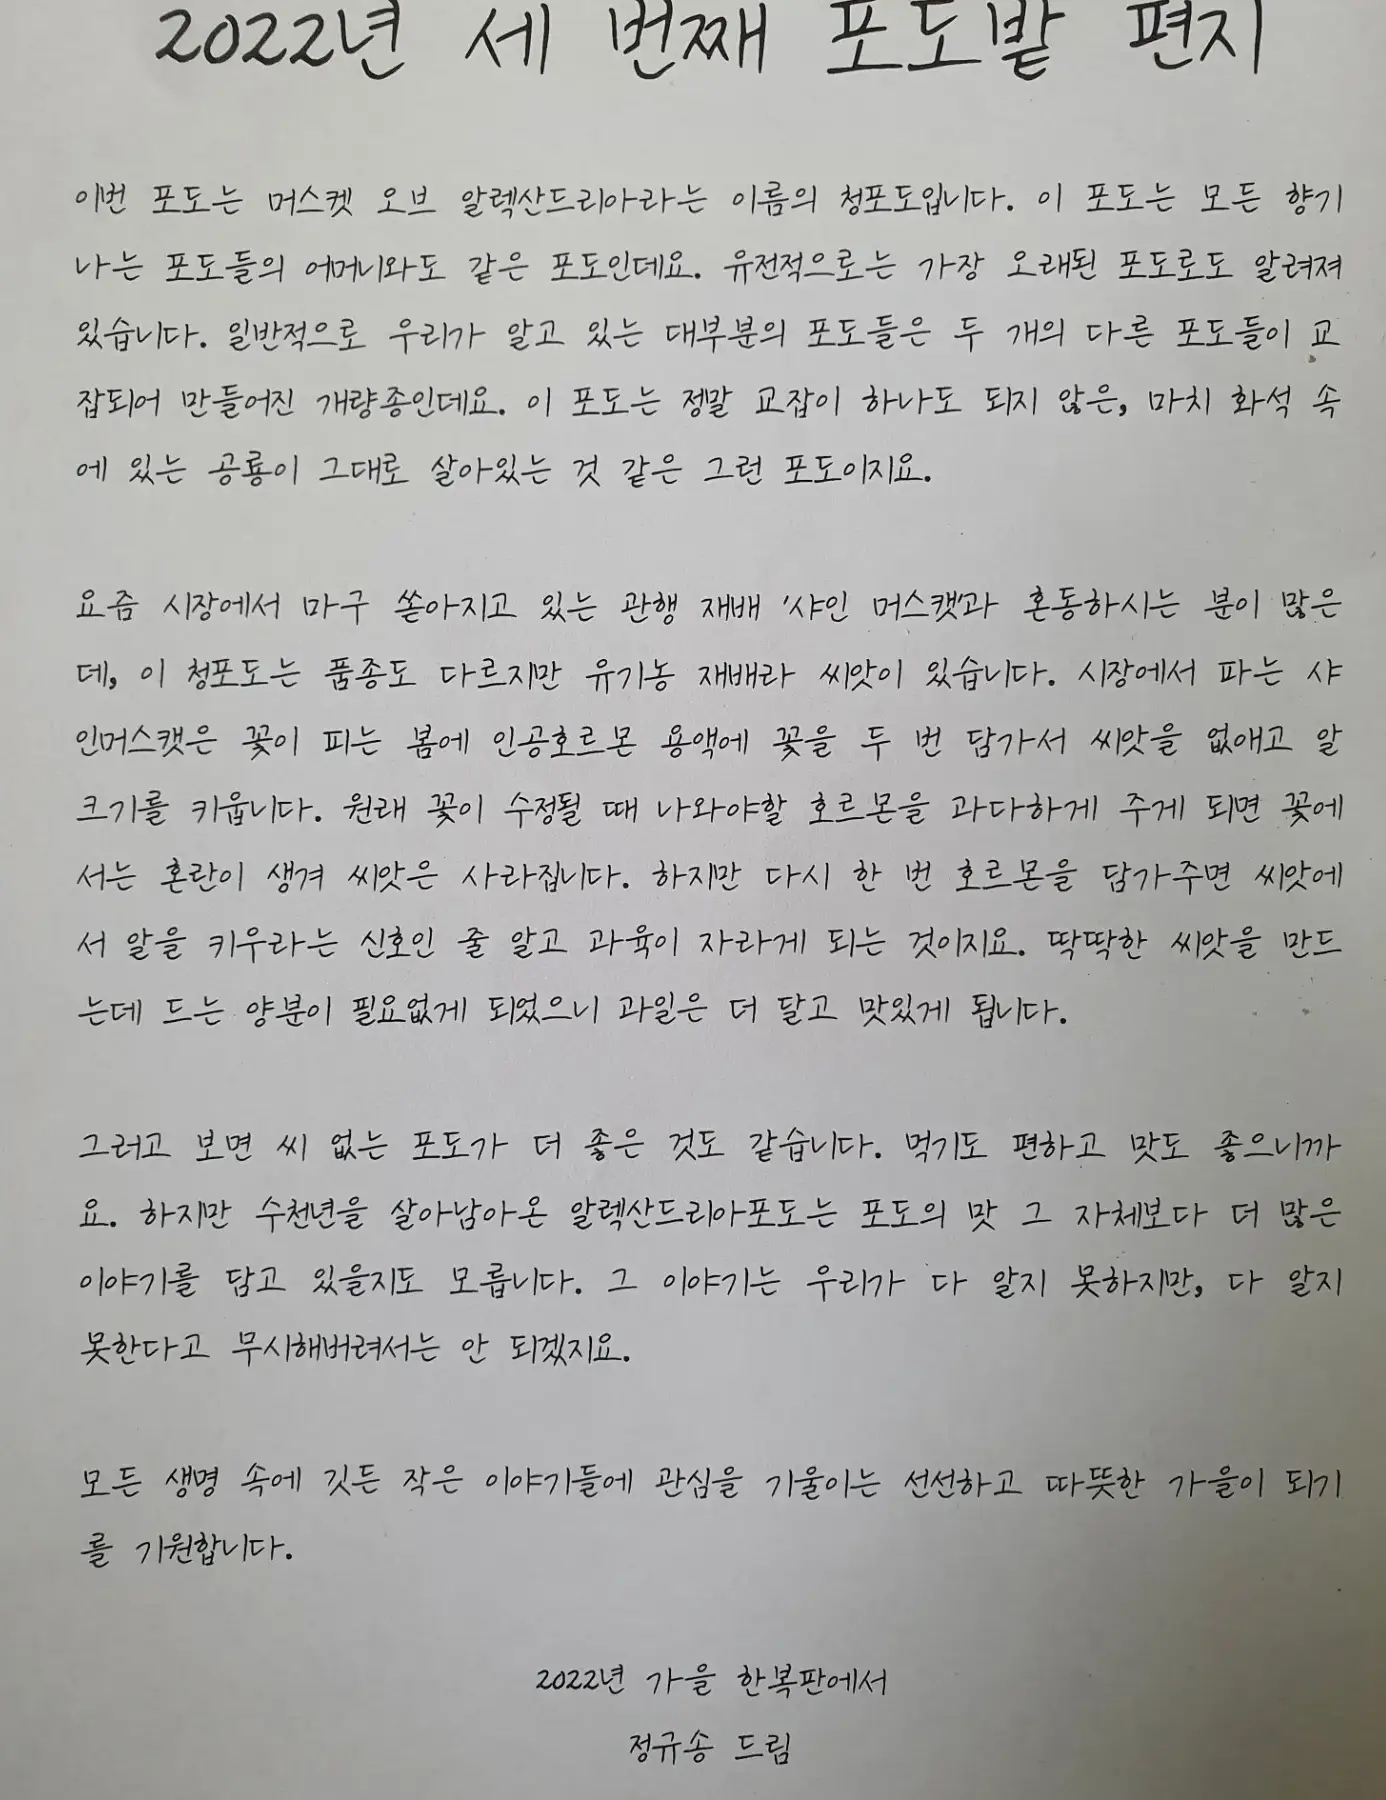 2022년 세 번째 포도밭 편지
이번 포도는 머스켓 오브 알렉산드리아라는 이름의 청포도입니다. 이 포도는 모든 향기
나는 포도들의 어머니와도 같은 포도인데요. 유전적으로는 가장 오래된 포도로도 알려져
있습니다. 일반적으로 우리가 알고 있는 대부분의 포도들은 두 개의 다른 포도들이 교
잡되어 만들어진 개량종인데요. 이 포도는 정말 교잡이 하나도 되지 않은, 마치 화석 속
에 있는 공룡이 그대로 살아있는 것 같은 그런 포도이지요.
요즘 시장에서 마구 쏟아지고 있는 관행 재배 '샤인 머스캣'과 혼동하시는 분이 많은
데, 이 청포도는 품종도 다르지만 유기농 재배라 씨앗이 있습니다. 시장에서 파는 샤
인머스캣은 꽃이 피는 봄에 인공호르몬 용액에 꽃을 두 번 담가서 씨앗을 없애고 알
크기를 키웁니다. 원래 꽃이 수정될 때 나와야할 호르몬을 과다하게 주게 되면 꽃에
서는 혼란이 생겨 씨앗은 사라집니다. 하지만 다시 한 번 호르몬을 담가주면 씨앗에
서 알을 키우라는 신호인 줄 알고 과육이 자라게 되는 것이지요. 딱딱한 씨앗을 만드
는데 드는 양분이 필요없게 되었으니 과일은 더 달고 맛있게 됩니다.
그러고 보면 씨 없는 포도가 더 좋은 것도 같습니다. 먹기도 편하고 맛도 좋으니까
요. 하지만 수천년을 살아남아온 알렉산드리아포도는 포도의 맛 그 자체보다 더 많은
이야기를 담고 있을지도 모릅니다. 그 이야기는 우리가 다 알지 못하지만, 다 알지
못한다고 무시해버려서는 안 되겠지요.
모든 생명 속에 깃든 작은 이야기들에 관심을 기울이는 선선하고 따뜻한 가을이 되기
를 기원합니다.
2022년 가을 한복판에서
정규송 드림